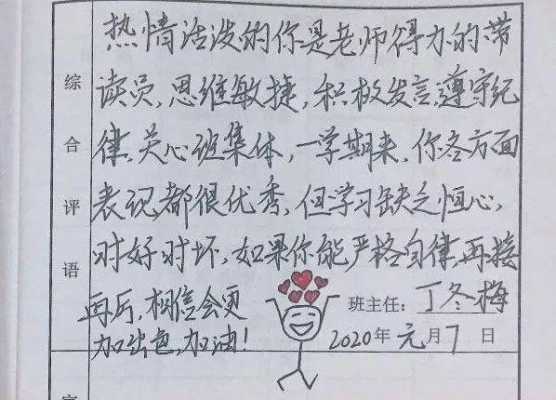 综合评语
热情活泼的你是老师得力的带
读员，思维敏捷，积极发言，遵守纪
律，关心班集体，一学期来，你各方面
表现都很优秀，但学习缺乏恒心，
时好时坏，如果你能严格自律，再接
再厉，相信会更
加出色，加油！
班主任：丁冬梅
2020年元月7日